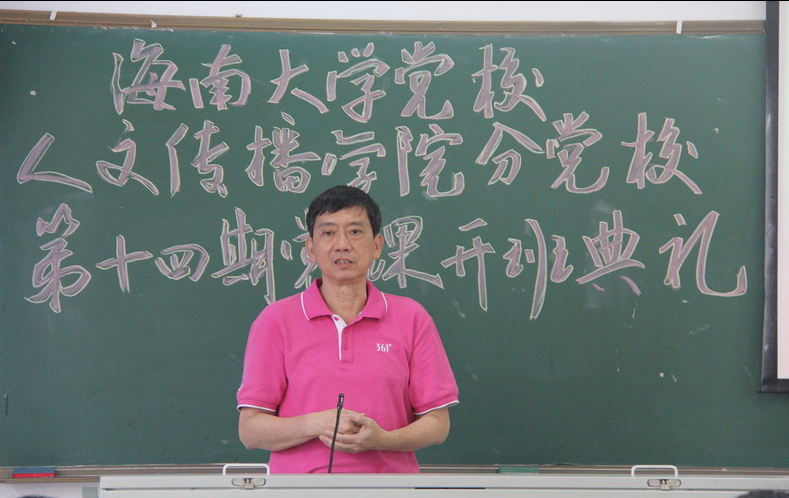 海南大学党校
人文传播学院分党校
第十四期党课开班典礼
361°